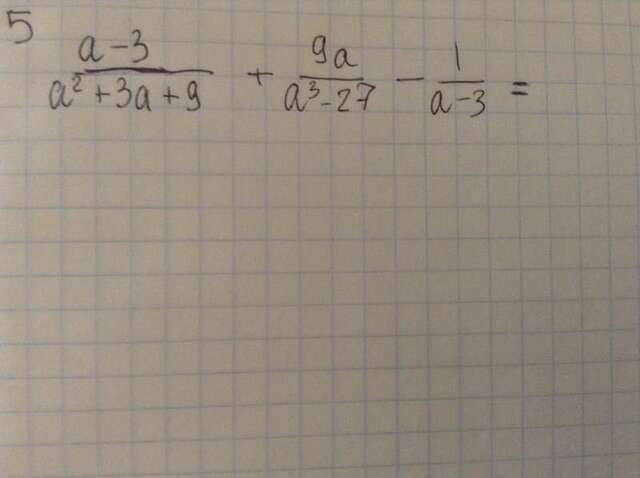 5
a-3/a²+3a+9 + 9a/a³-27 - 1/a-3 =